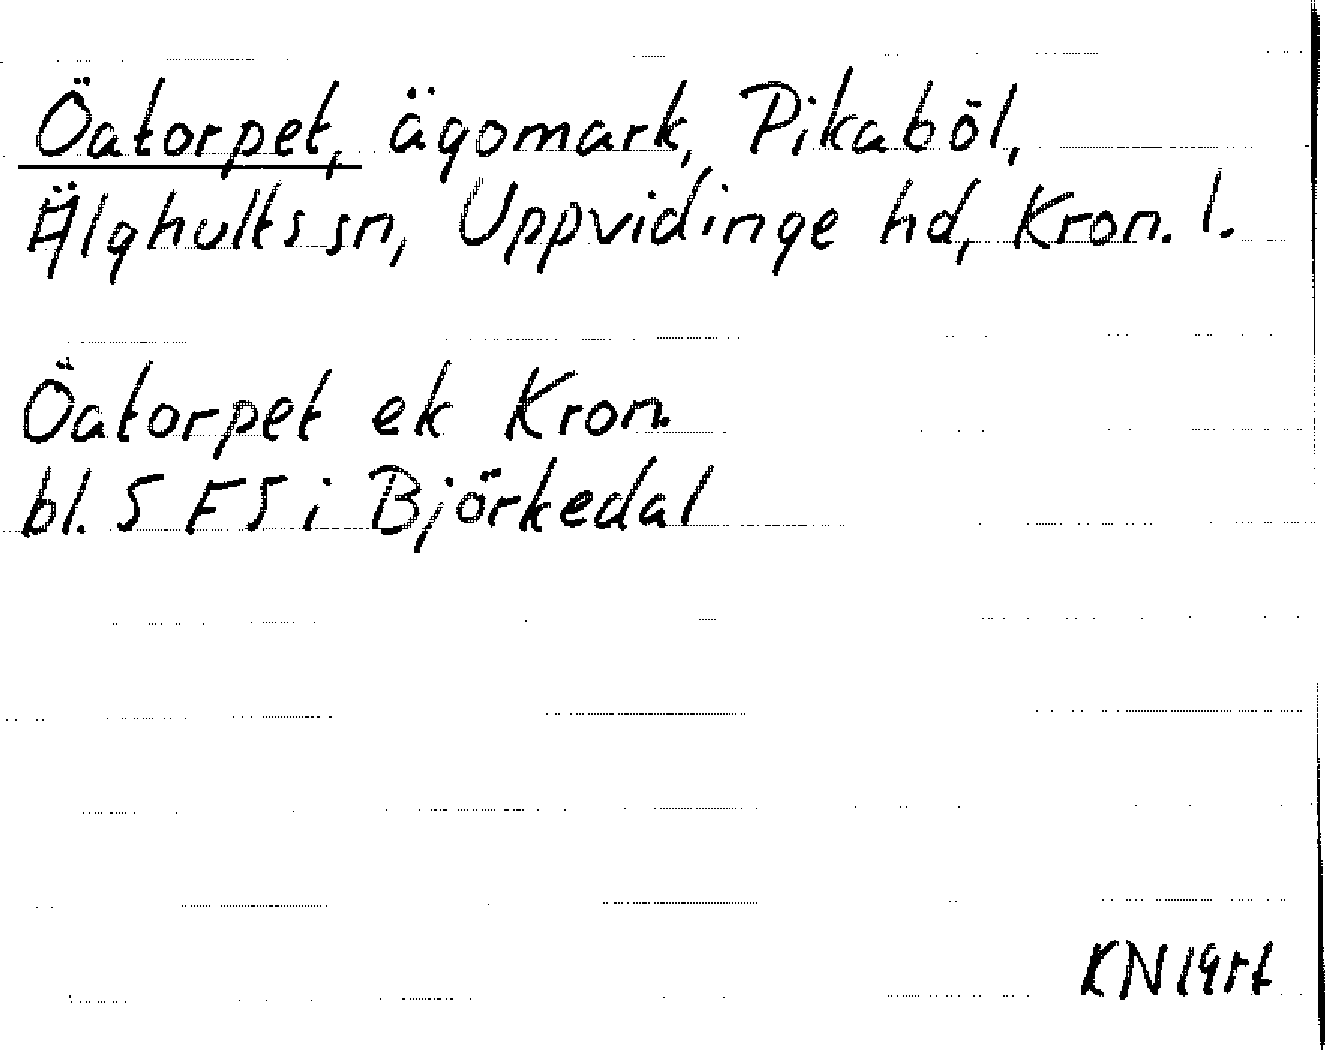 Öatorpet, ägomark, Pikaböl,
Älghults sn, Uppvidinge hd, Kron. l.
Öatorpet ek Kron.
bl. 5 F5 i Björkedal